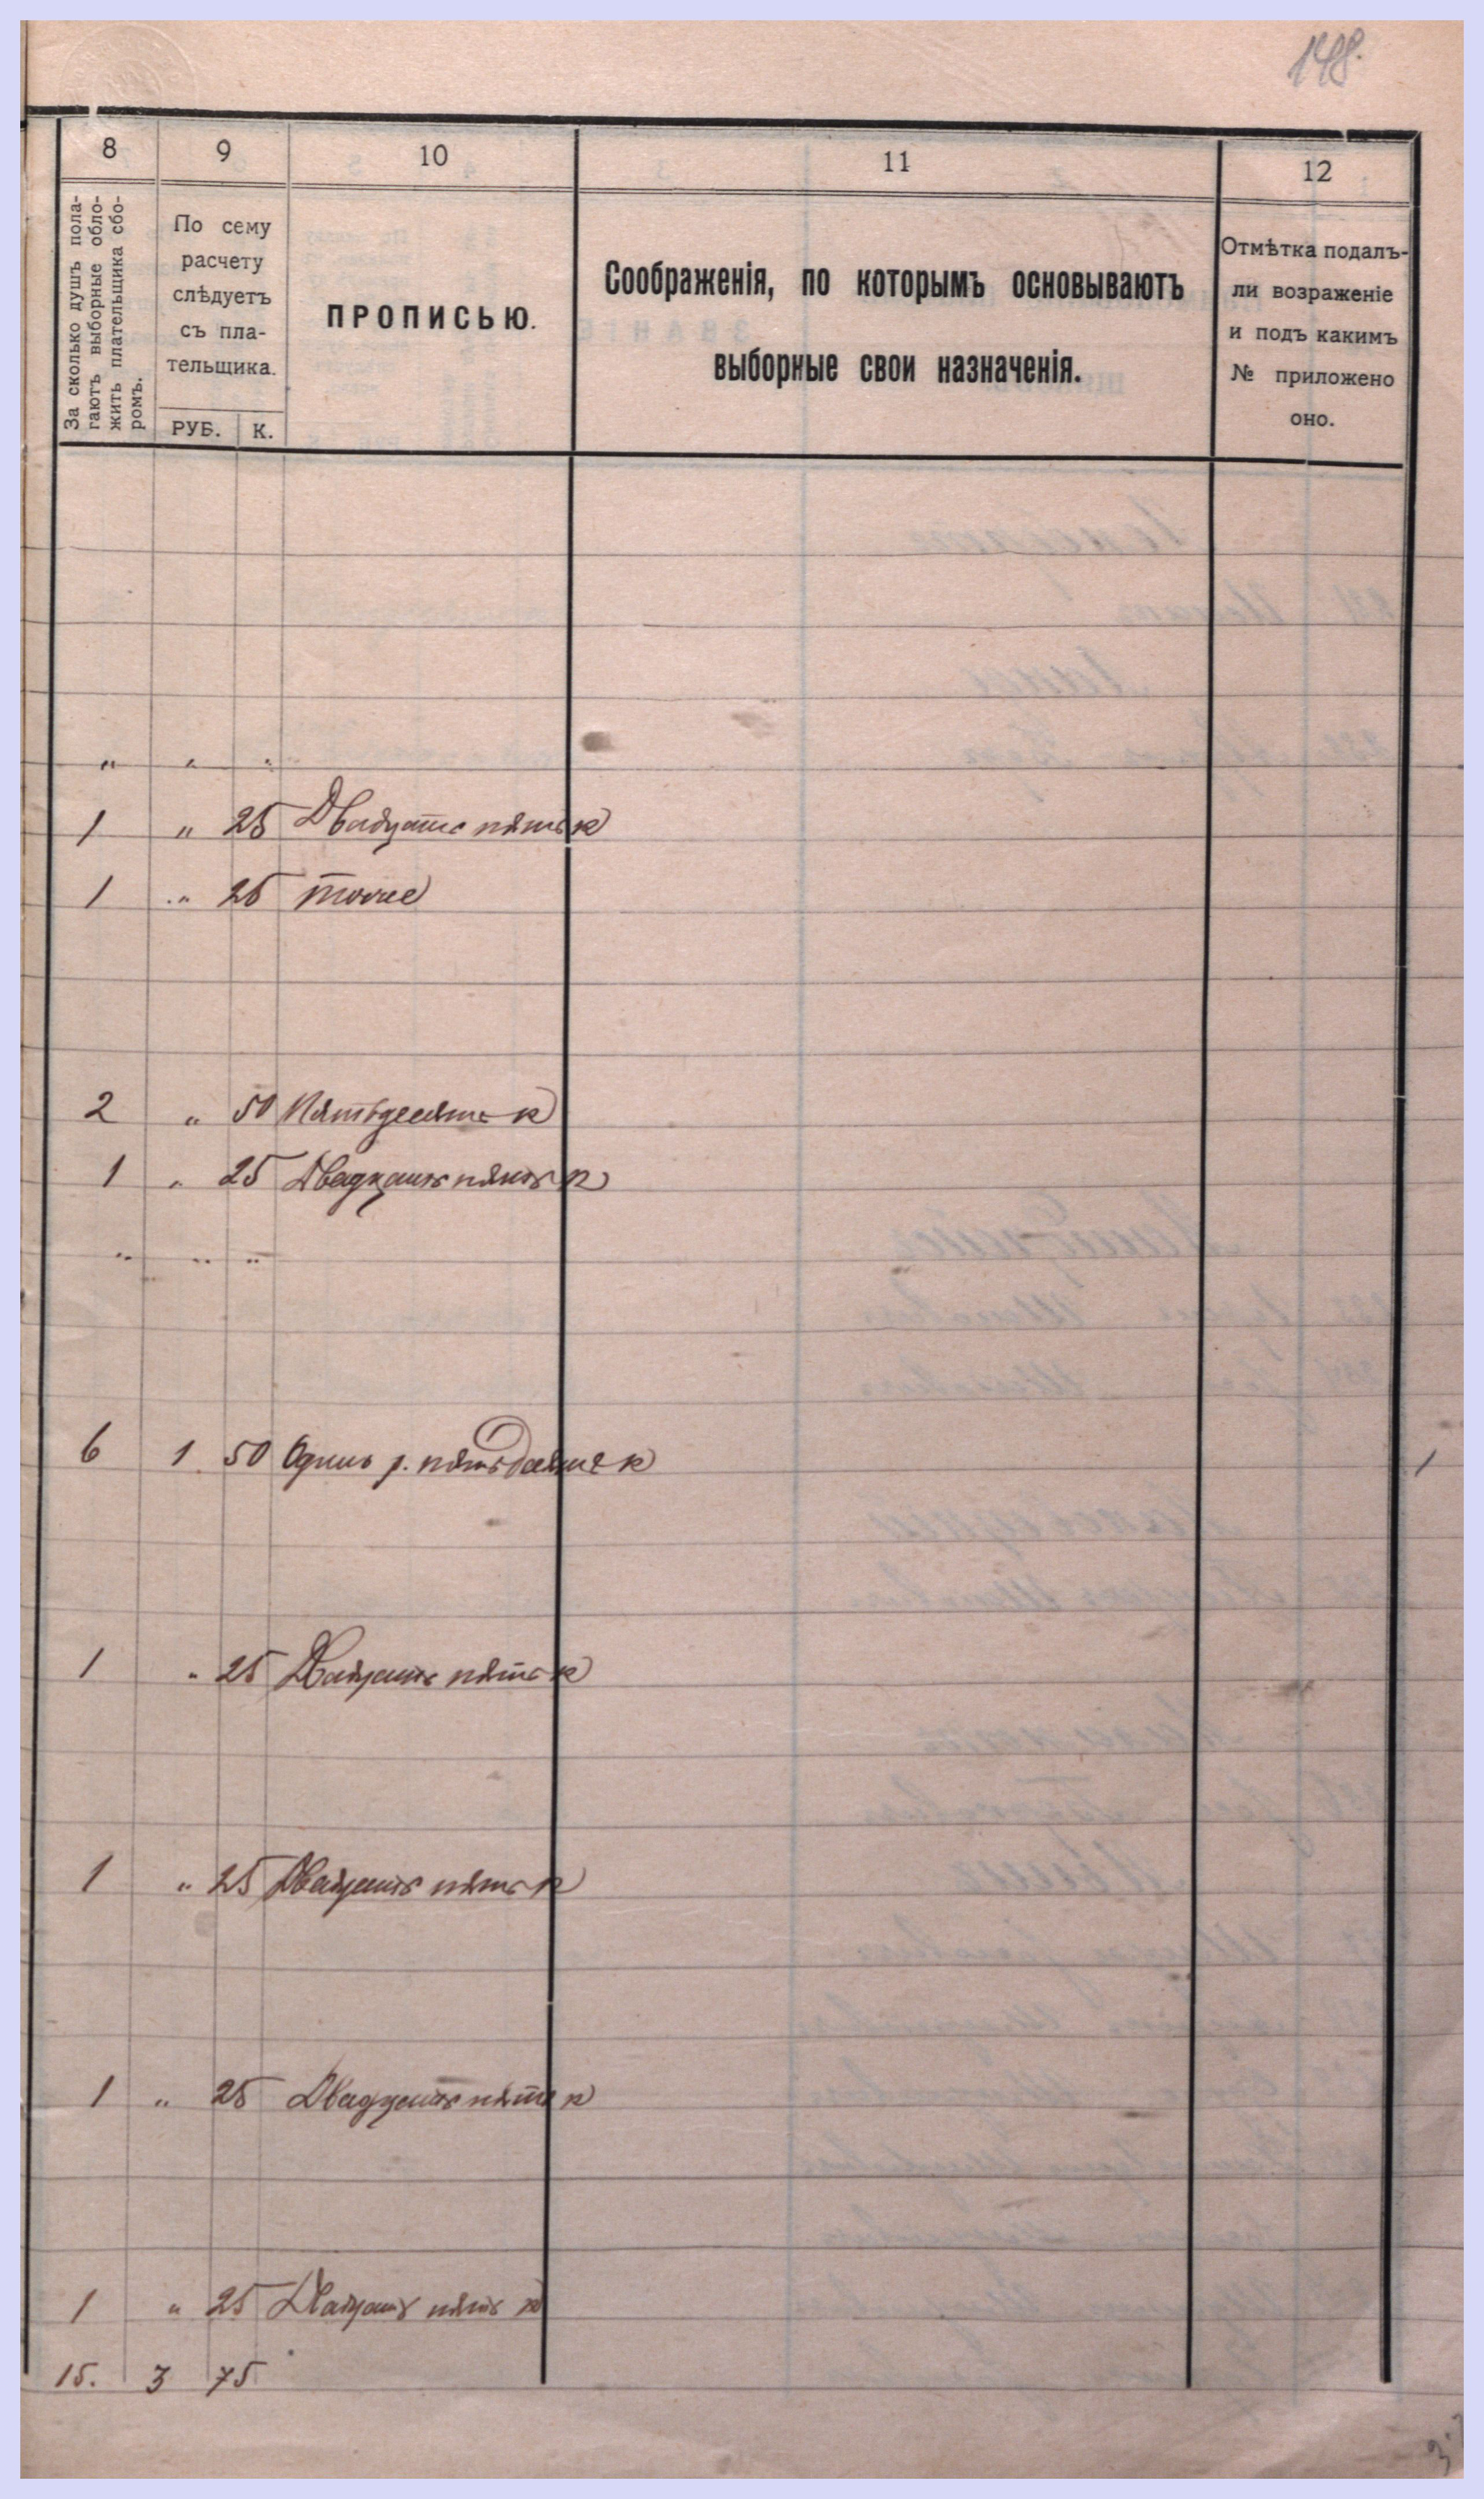 148.
8 9 10 11 12
За сколько душъ пола-
гаютъ выборные обло-
жить плательщика сбо-
ромъ.
По сему
расчету
слѣдуетъ
съ пла-
тельщика.
РУБ. К.
ПРОПИСЬЮ.
Соображенія, по которымъ основываютъ
выборные свои назначенія.
Отмѣтка подалъ-
ли возраженіе
и подъ какимъ
№ приложено
оно.
„ „ „
1 „ 25 Двадцать пять к
1 „ 25 тоже
2 „ 50 Пятьдесять к
1 „ 25 Двадцать пять к
„ „ „
6 1 50 Одинъ р. пятьдесять к
1 „ 25 Двадцать пять к
1 „ 25 Двадцать пять к
1 „ 25 Двадцать пять к
1 „ 25 Двадцать пять к
15. 3 75